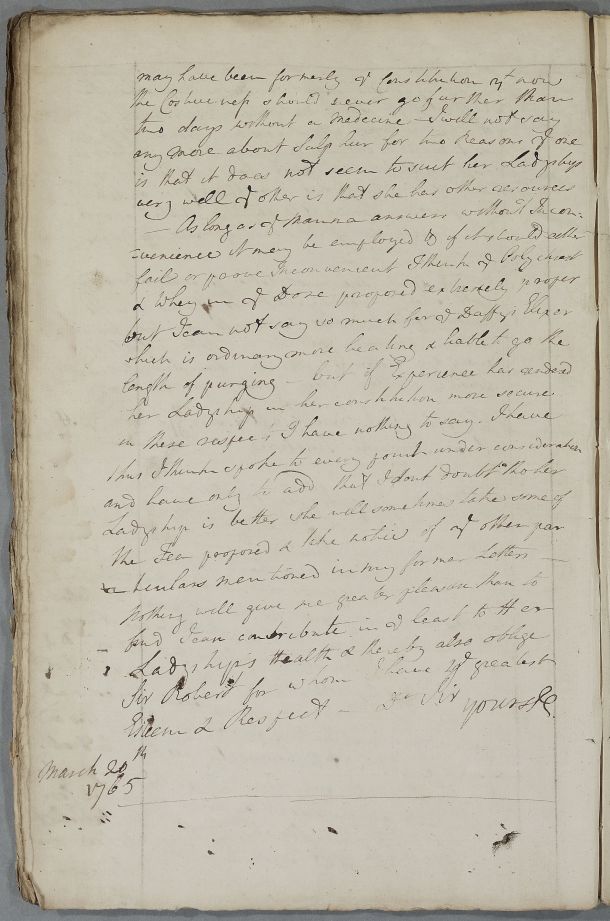 may have been formerly yͤ Constitution yͭ now
the Costiveness should never go further than
two days without a medecine – I will not say
any more about Sulphur for two Reasons yͤ one
is that it does not seem to suit her Ladyships
very well yͤ other is that she has other resources
– As long as yͤ Manna answers without Incon-
-venience it may be employed & if it should either
fail or prove Inconvenient I think yͤ Polychrest
& Whey in yͤ Dose proposed extremely proper
but I can not say so much for yͤ Daffy's Elixer
which is ordinary more heating & liable to go the
length of purging – but if Experience has rendered
her Ladyship in her constitution more secure
in these respects I have nothing to say. I have
thus I think spoke to every point under consideration
and have only to add that I dont doubt tho her
Ladyship is better she will sometimes take some of
the Tea proposed & take notice of yͤ other par
ticulars mentioned in my former Letters –
Nothing will give me greater pleasure than to
find I can contribute in yͤ least to Her
Ladyships Health & thereby also oblige
Sir Robert for whom I have yͤ greatest
Esteem & Respect – Dr Sir yours &c
March 20th
1765